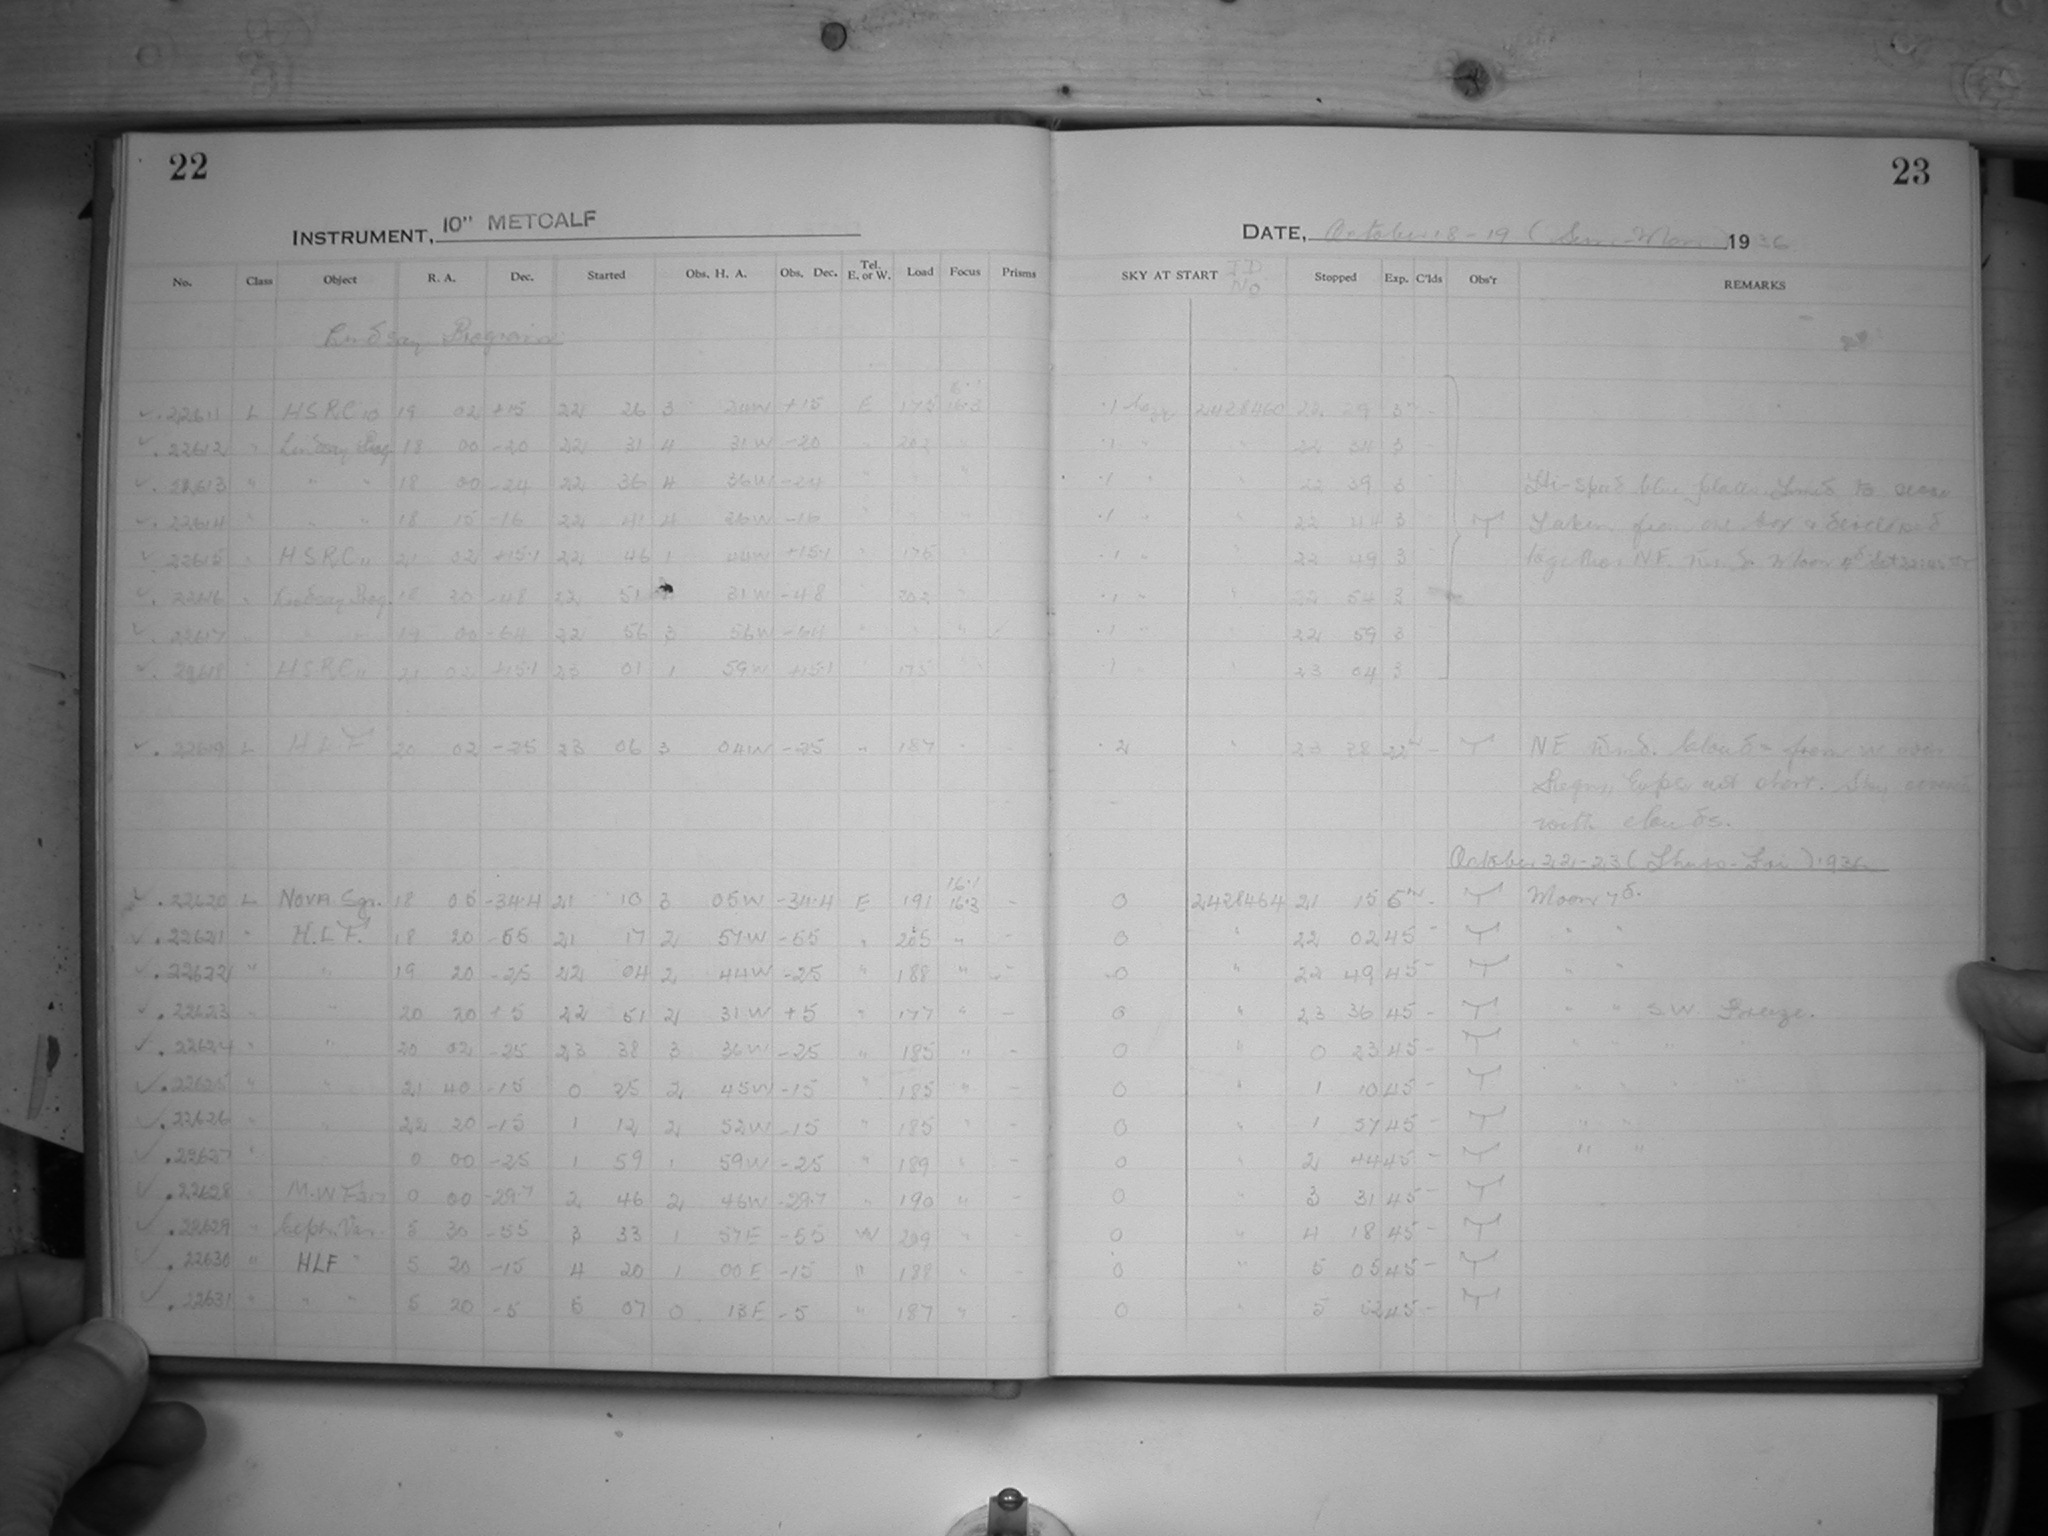 22
INSTRUMENT, 10" METCALF
No. Class Object R. A. Dec. Started Obs. H. A. Obs. Dec. Tel. E. or W. Load Focus Prisms
Lindsay Program
22611 L HSRC 19 02 +15 22 26 3 W +15 E 175 16.3
22612 " Lindsay Prog 18 00 -20 22 31 4 31W -20 " 202 "
22613 " " " 18 00 -24 22 36 4 36W -24 " " "
22614 " " " 18 15 -16 22 41 4 26W -16
22615 " HSRC " 21 02 +15.1 22 46 1 44W +15.1 " 175
22616 " Lindsay Prog. 18 20 -48 22 51 31W -48 202 "
22617 " " 19 00 -64 22 56 3 56W -64 " " "
22618 " HSRC " 21 02 +15.1 23 01 1 59W +15.1 175
22619 L HLF 20 02 -25 23 06 3 04W -25 " 187 "
22620 L NOVA Sgr. 18 05 -34.4 21 10 3 05W -34.4 E 191 16.1 16.3 -
22621 " H.L.F. 18 20 -55 21 17 2 57W -55 " 205 " -
22622 " " 19 20 -25 22 04 2 44W -25 " 188 " -
22623 " " 20 20 +5 22 51 2 31W +5 " 177 " -
22624 " " 20 02 -25 23 38 3 36W -25 " 185 " -
22625 " " 21 40 -15 0 25 2 45W -15 " 185 " -
22626 " " 22 20 -15 1 12 2 52W -15 " 185 " -
22627 " 0 00 -25 1 59 1 59W -25 " 189 " -
22628 M.W.F. 0 00 -29.7 2 46 2 46W -29.7 " 190 " -
22629 " Ceph. Var. 5 30 -55 3 33 1 57E -55 W 209 " -
22630 " HLF " 5 20 -15 4 20 1 00E -15 " 188 " -
22631 " " " 5 20 -5 5 07 0 13E -5 " 187 " -
23
DATE, October 18-19 (Sun-Mon) 1936
SKY AT START JD No Stopped Exp. C'lds Obs'r REMARKS
.1 hazy 2428460 22 29 3 -
.1 " " 22 34 3
.1 " " 22 39 3 Hi-speed blue plates
.1 " " 22 44 3 T Taken from one box & developed
.1 " " 22 49 3 together N.E. wind Moon set
.1 " " 22 54 3
.1 " " 22 59 3
.1 " " 23 04 3
.2 " 23 28 22 - T NE wind. Clouds from
Region, Exp. cut short. Sky covered
with clouds.
October 22-23 (Thurs-Fri) 1936
0 2428464 21 15 5 - T Moon 7d.
0 " 22 02 45 - T " "
0 " 22 49 45 - T " "
0 " 23 36 45 - T " " SW Breeze.
0 " 0 23 45 - T " " " "
0 " 1 10 45 - T " " " "
0 " 1 57 45 - T " "
0 " 2 44 45 - T " "
0 " 3 31 45 - T
0 " 4 18 45 - T
0 " 5 05 45 - T
0 " 5 52 45 - T